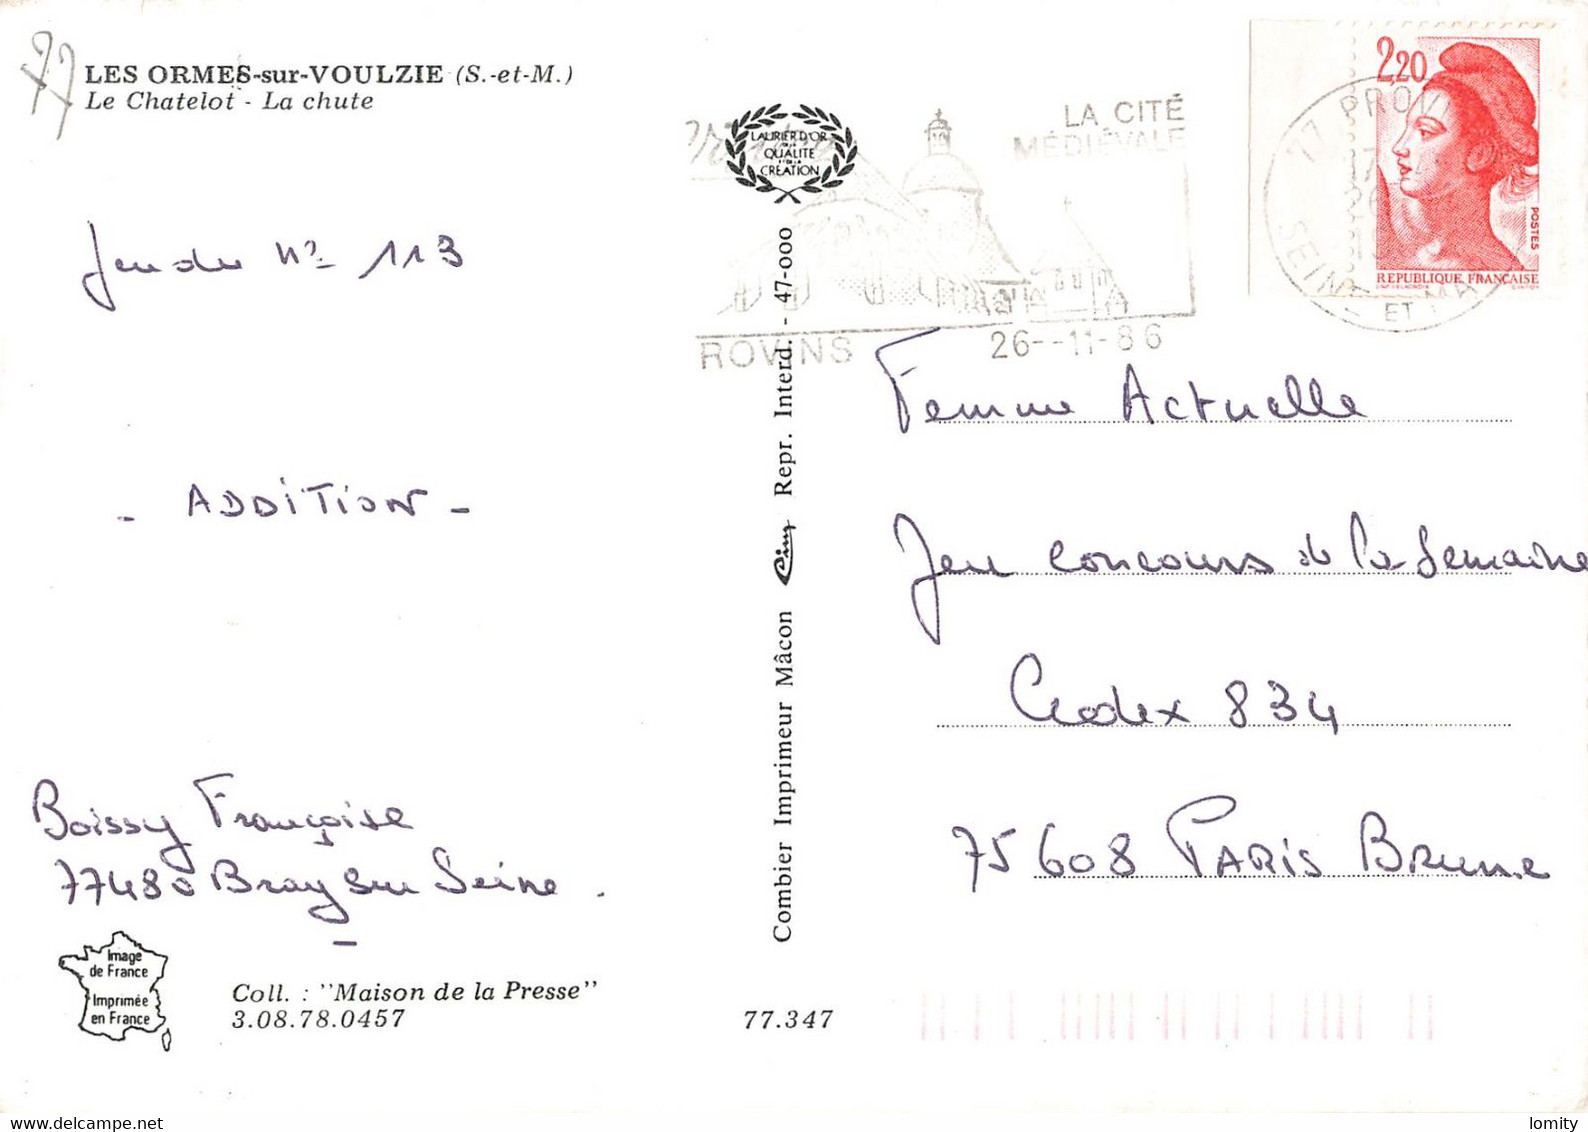 77
LES ORMES-sur-VOULZIE (S.-et-M.)
Le Chatelot - La chute
LAURIER D'OR
QUALITE
CREATION
LA CITÉ
MÉDIÉVALE
ROVINS
26--11-86
2,20
POSTES
REPUBLIQUE FRANÇAISE
SEINE ET
Jeu du N° 113
- ADDITION -
Boissy Françoise
77480 Bray sur Seine.
Image
de France
Imprimée
en France
Coll. : "Maison de la Presse"
3.08.78.0457
77.347
Combier Imprimeur Mâcon Cim Repr. Interd. - 47-000
Femme Actuelle
Jeu concours de la Semaine
Cedex 834
75608 PARIS Brune
lomity